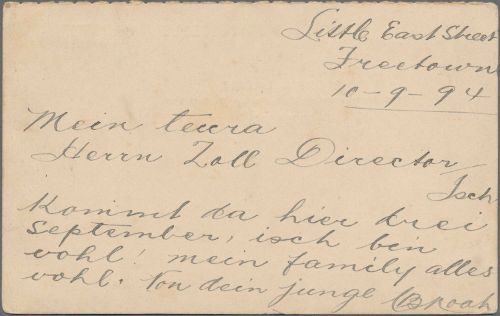 Little East Street
Freetown
10-9-94
Mein teura
Herrn Zoll Director
Isch
kommt da hier drei
September, isch bin
wohl! mein family alles
wohl. Von dein junge